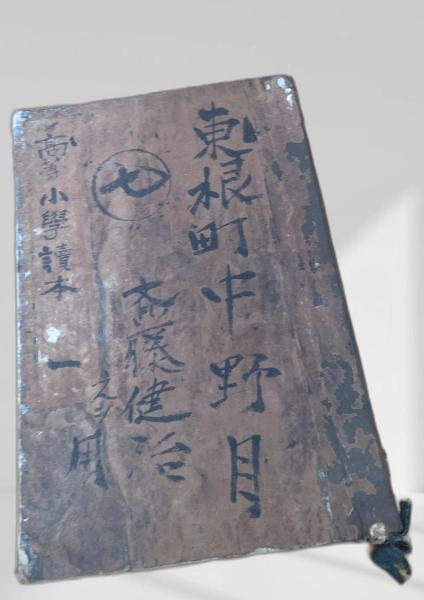 東根町中野目
七
斎藤健治
用
高等小學讀本 一